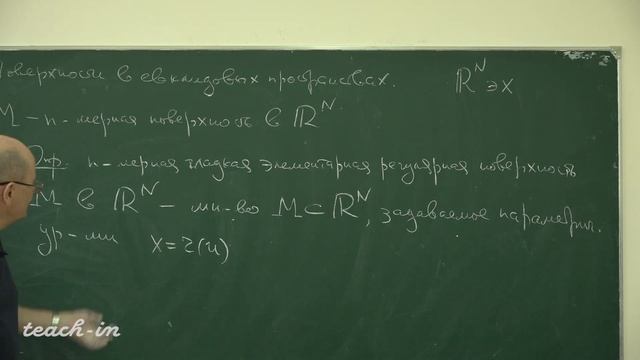 поверхности в евклидовых пространствах. ℝᴺ ∋ x
M – n-мерная поверхность в ℝᴺ
Опр. n-мерная гладкая элементарная регулярная поверхность
M в ℝᴺ – мн-во M ⊂ ℝᴺ, задаваемое параметрич.
ур-ми x = r(u)
teach-in